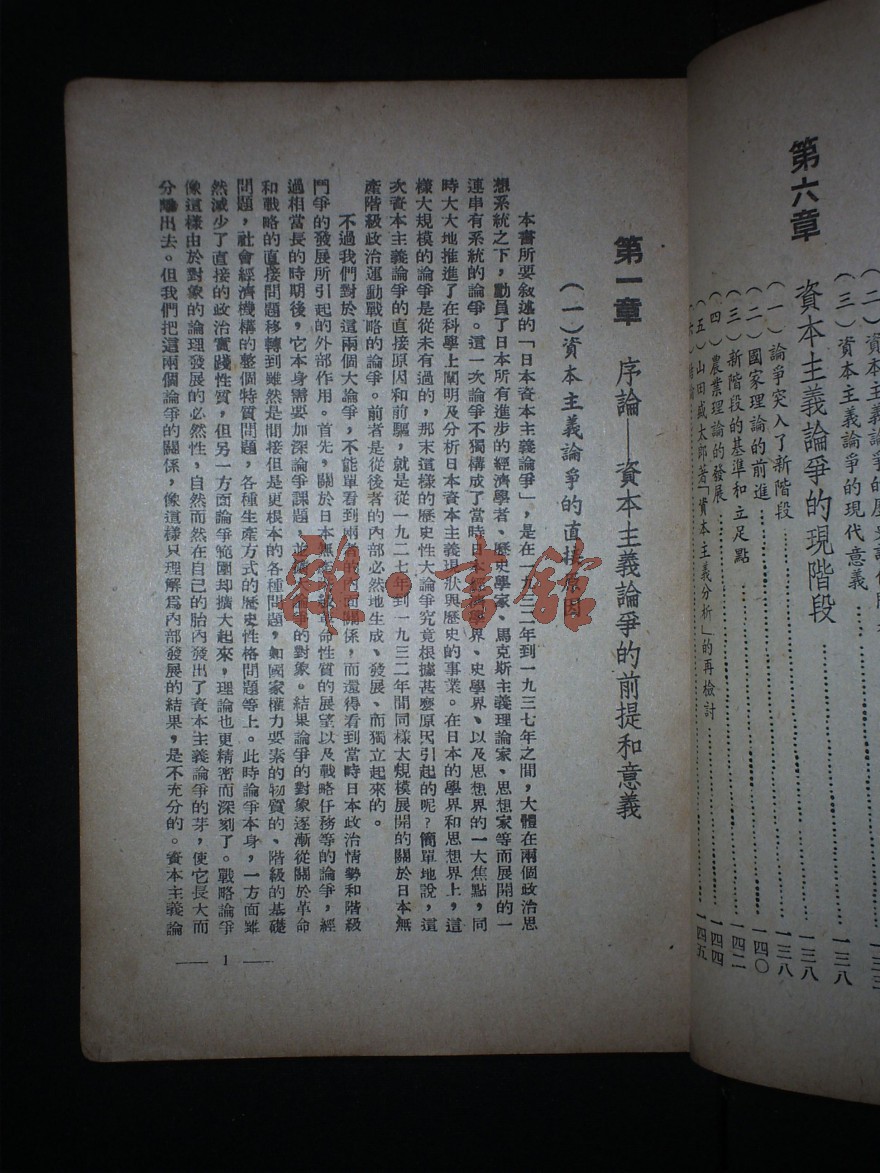 第六章 資本主義論爭的現階段……一三八
(三)資本主義論爭的現代意義……一三八
(一)論爭突入了新階段……一三八
(二)國家理論的前進……一四〇
(三)新階段的基準和立足點……一四二
(四)農業理論的發展……一四四
(五)山田盛太郎著「資本主義分析」的再檢討……一四五
第一章 序論——資本主義論爭的前提和意義
(一)資本主義論爭的直接原因
本書所要敘述的「日本資本主義論爭」,是在一九三二年到一九三七年之間,大體在兩個政治思
想系統之下,動員了日本所有進步的經濟學者、歷史學家、馬克斯主義理論家、思想家等而展開的一
連串有系統的論爭。這一次論爭不獨構成了當時日本經濟學界、史學界、以及思想界的一大焦點,同
時大大地推進了在科學上闡明及分析日本資本主義現狀與歷史的事業。在日本的學界和思想界上,這
樣大規模的論爭是從未有過的,那末這樣的歷史性大論爭究竟根據甚麼原因引起的呢?簡單地說,這
次資本主義論爭的直接原因和前驅,就是從一九二七年到一九三二年間同樣大規模展開的關於日本無
產階級政治運動戰略的論爭。前者是從後者的內部必然地生成、發展、而獨立起來的。
不過我們對於這兩個大論爭,不能單看到兩者的內面關係,而還得看到當時日本政治情勢和階級
鬥爭的發展所引起的外部作用。首先,關於日本無產階級革命性質的展望以及戰略任務等的論爭,經
過相當長的時期後,它本身需要加深論爭課題,並擴大論爭的對象。結果論爭的對象逐漸從關於革命
和戰略的直接問題移轉到雖然是間接但是更根本的各種問題,如國家權力要素的物質的、階級的基礎
問題,社會經濟機構的整個特質問題,各種生產方式的歷史性格問題等上。此時論爭本身,一方面雖
然減少了直接的政治實踐性質,但另一方面論爭範圍却擴大起來,理論也更精密而深刻了。戰略論爭
像這樣由於對象的論理發展的必然性,自然而然在自己的胎內發出了資本主義論爭的芽,使它長大而
分離出去。但我們把這兩個論爭的關係,像這樣只理解爲內部發展的結果,是不充分的。資本主義論
1